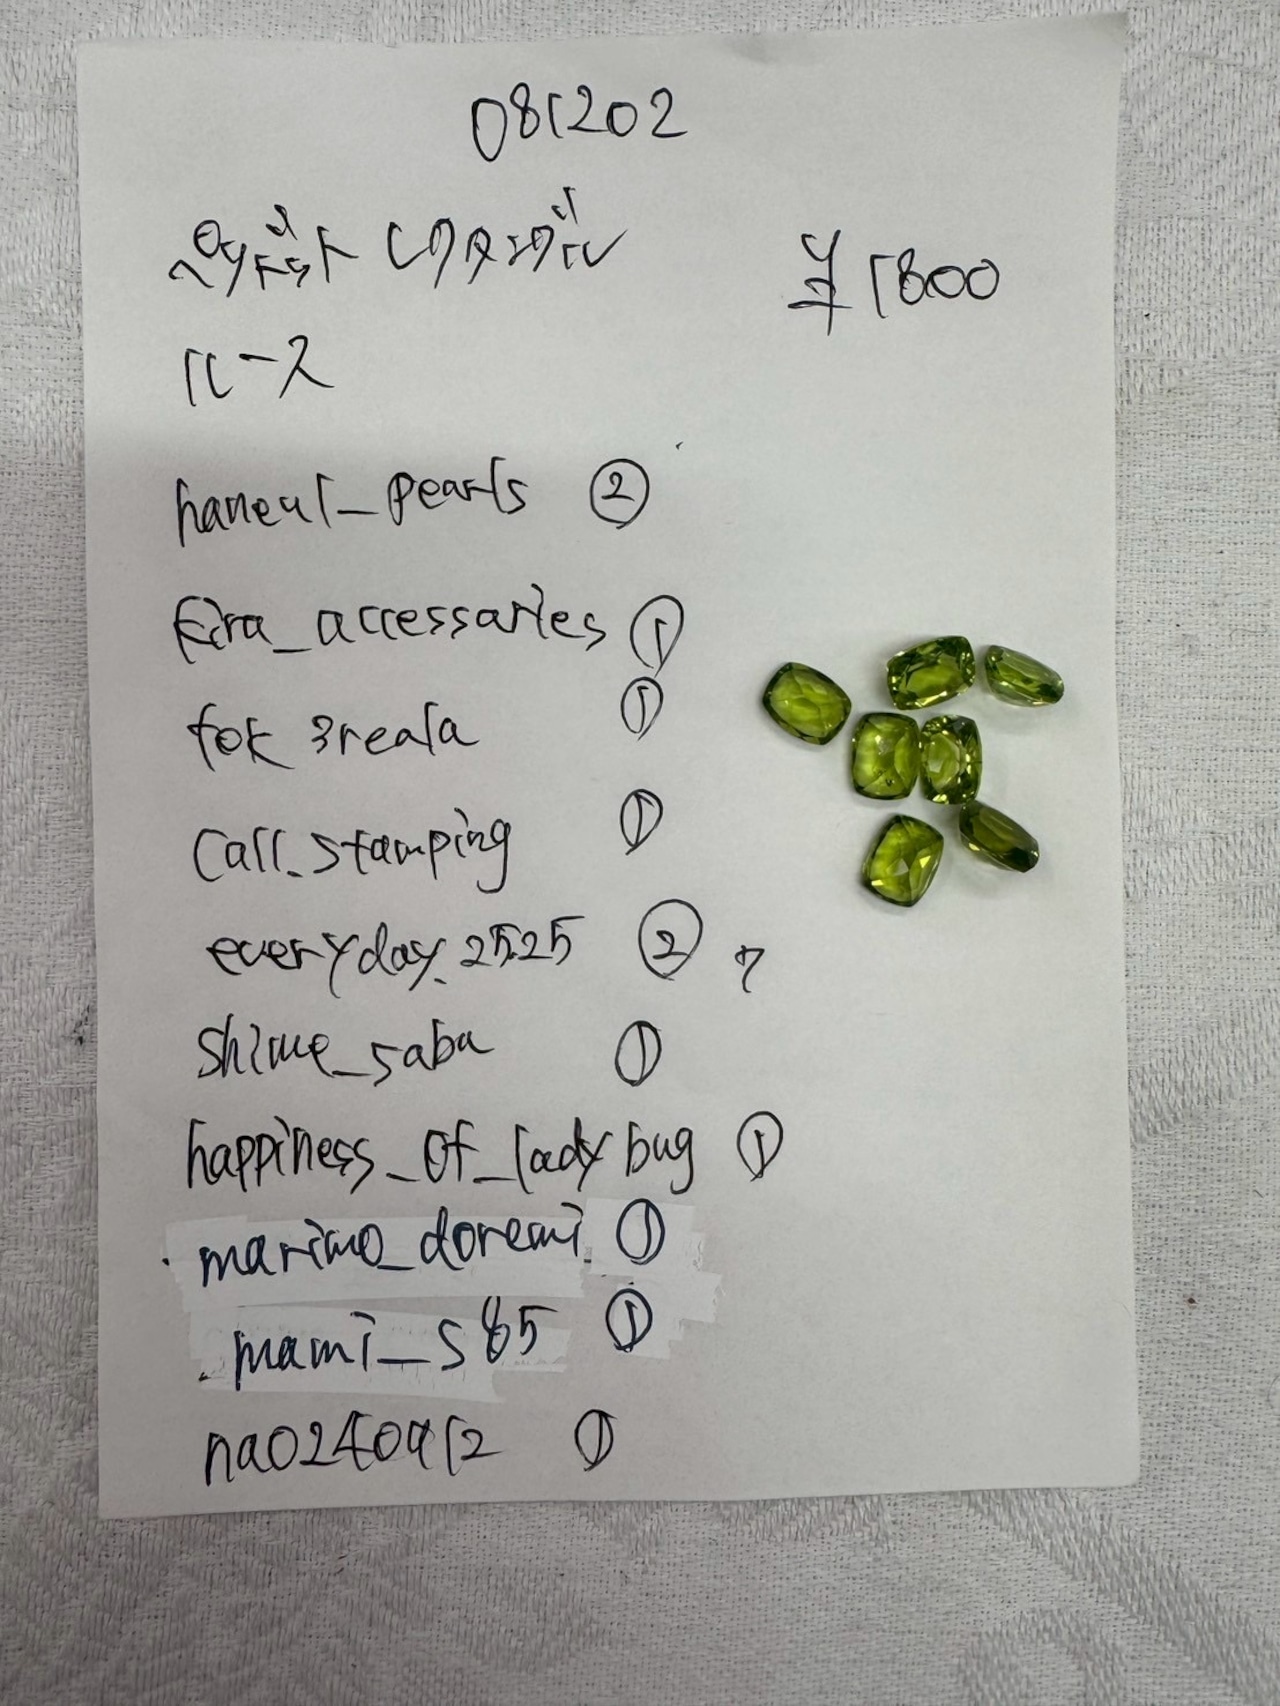 081202
ペリドット レクタングル ¥1800
ルース
haneul_pearls ②
kira_accessaries ①
fok 3reala ①
Call.stamping ①
everyday.2525 ② 7
shime_saba ①
happiness_of_ladybug ①
marimo_doremi ①
mami_s85 ①
na0240912 ①